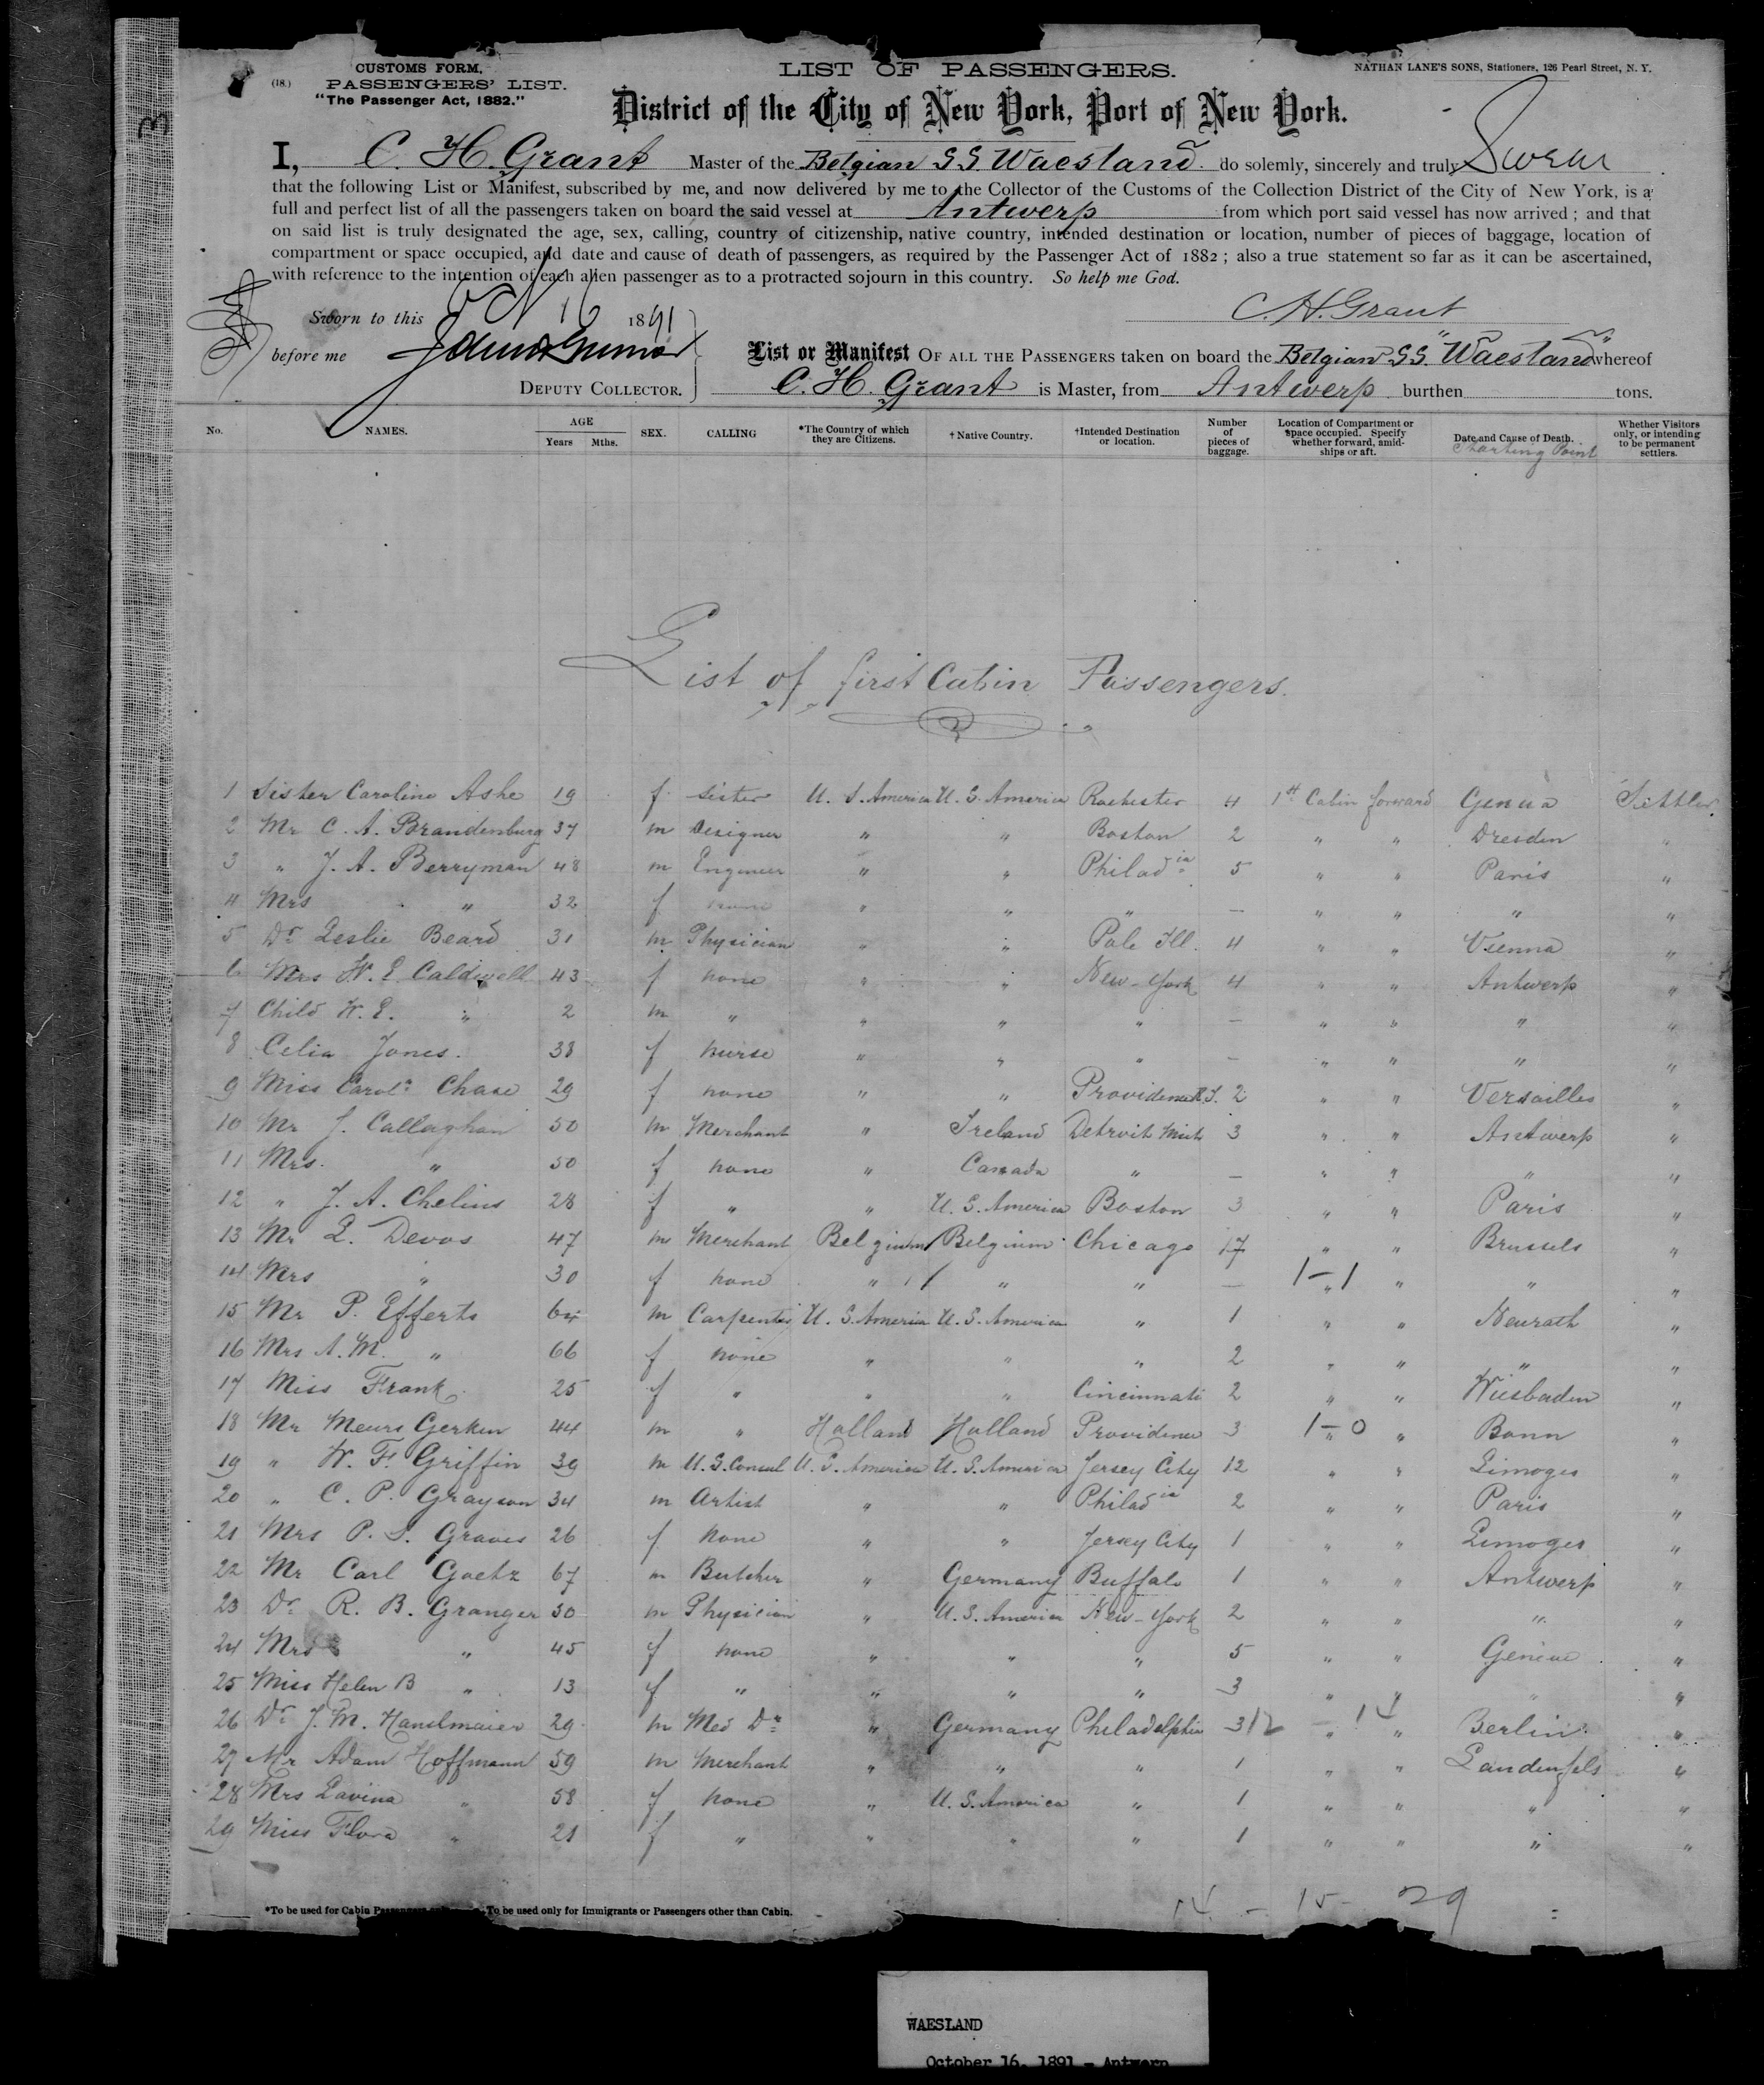 3
(18.)
CUSTOMS FORM,
PASSENGERS' LIST.
"The Passenger Act, 1882."
LIST OF PASSENGERS.
NATHAN LANE'S SONS, Stationers, 126 Pearl Street, N. Y.
District of the City of New York, Port of New York.
I, C. H. Grant Master of the Belgian S.S. Waesland do solemnly, sincerely and truly Swear
that the following List or Manifest, subscribed by me, and now delivered by me to the Collector of the Customs of the Collection District of the City of New York, is a
full and perfect list of all the passengers taken on board the said vessel at Antwerp from which port said vessel has now arrived ; and that
on said list is truly designated the age, sex, calling, country of citizenship, native country, intended destination or location, number of pieces of baggage, location of
compartment or space occupied, and date and cause of death of passengers, as required by the Passenger Act of 1882 ; also a true statement so far as it can be ascertained,
with reference to the intention of each alien passenger as to a protracted sojourn in this country. So help me God.
C. H. Grant
Sworn to this 16 1891
before me
DEPUTY COLLECTOR.
List or Manifest OF ALL THE PASSENGERS taken on board the Belgian S.S. "Waesland" whereof
C. H. Grant is Master, from Antwerp burthen tons.
No. NAMES. AGE Years Mths. SEX. CALLING *The Country of which they are Citizens. †Native Country. †Intended Destination or location. Number of pieces of baggage. Location of Compartment or space occupied. Specify whether forward, amidships or aft. Date and Cause of Death. Starting Point Whether Visitors only, or intending to be permanent settlers.
List of first Cabin Passengers.
1 Sister Caroline Ashe 19 f. sister U. S. America U. S. America Rochester 4 1st Cabin forward Genua Settler.
2 Mr C. A. Brandenburg 37 m Designer " " Boston 2 " " Dresden "
3 " J. A. Berryman 48 m Engineer " " Philadia 5 " " Paris "
4 Mrs " 32 f none " " " — " " " "
5 Dr Leslie Beard 31 m Physician " " Polo Ill. 4 " " Vienna "
6 Mrs W. E. Caldwell 43 f none " " New-York 4 " " Antwerp "
7 Child W. E. " 2 m " " " " — " " " "
8 Celia Jones. 38 f nurse " " " — " " " "
9 Miss Carole Chase 29 f none " " Providence R.I. 2 " " Versailles "
10 Mr J. Callaghan 50 m Merchant " Ireland Detroit Mich 3 " " Antwerp "
11 Mrs. " 50 f none " Canada " — " " " "
12 " J. A. Chelius 28 f " " U. S. America Boston 3 " " Paris "
13 Mr L. Devos 47 m Merchant Belgium Belgium Chicago 17 " " Brussels "
14 Mrs " 30 f none " " " — 1-1 " " " "
15 Mr P. Efferts 64 m Carpenter U. S. America U. S. America " 1 " " Neurath "
16 Mrs A. M. " 66 f none " " " 2 " " " "
17 Miss Frank 25 f " " " Cincinnati 2 " " Wiesbaden "
18 Mr Meurs Gerken 44 m " Holland Holland Providence 3 1-0 " " Bonn "
19 " W. F. Griffin 39 m U. S. Consul U. S. America U. S. America Jersey City 12 " " Limoges "
20 " C. P. Grayson 34 m Artist " " Philadia 2 " " Paris "
21 Mrs P. S. Graves 26 f none " " Jersey City 1 " " Limoges "
22 Mr Carl Goetz 67 m Butcher " Germany Buffalo 1 " " Antwerp "
23 Dr R. B. Granger 50 m Physician " U. S. America New-York 2 " " " "
24 Mrs " 45 f none " " " 5 " " Genève "
25 Miss Helen B " 13 f " " " " 3 " " " "
26 Dr J. M. Hanslmaier 29 m Med Dr " Germany Philadelphia 3 " " Berlin "
27 Mr Adam Hoffmann 59 m Merchant " " " 1 " " Landenfels "
28 Mrs Lavina " 58 f none " U. S. America " 1 " " " "
29 Miss Flora " 21 f " " " " 1 " " " "
14 - 15 - 29
*To be used for Cabin To be used only for Immigrants or Passengers other than Cabin.
WAESLAND
October 16, 1891 - Antwerp